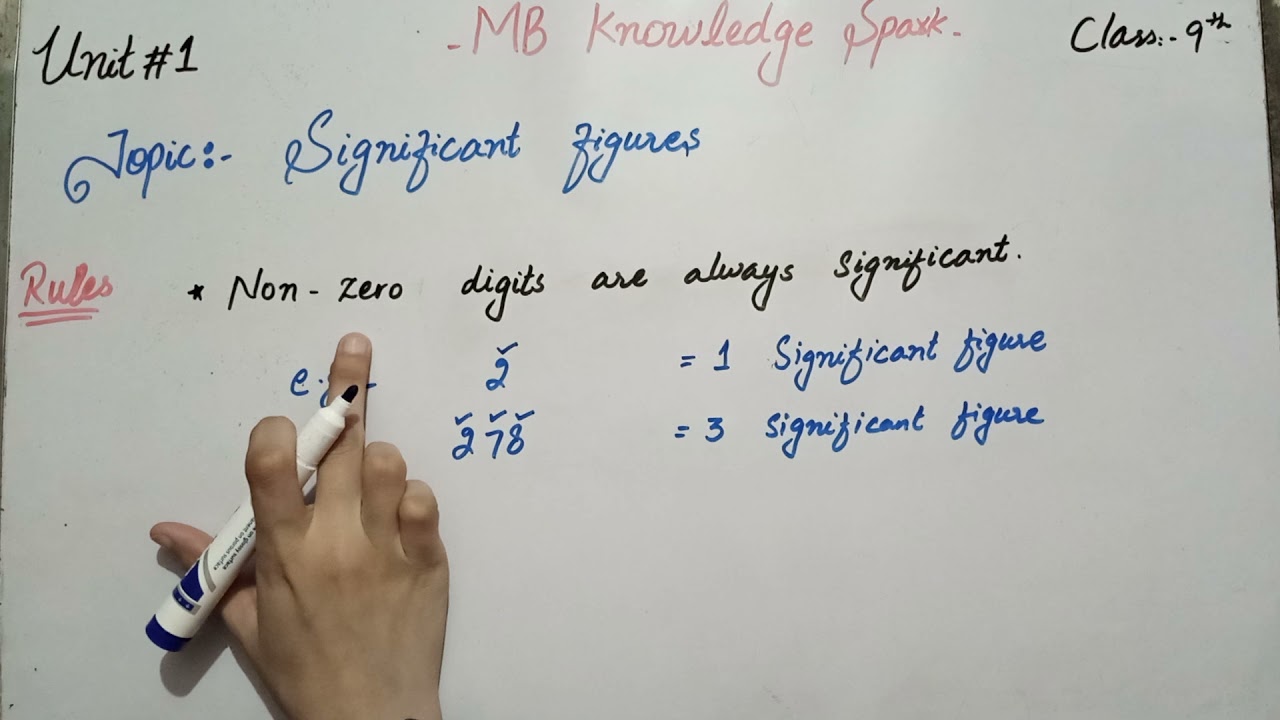 - MB Knowledge Spark.
Unit #1
Class:- 9th
Topic:- Significant figures
Rules
* Non-zero digits are always significant.
2 = 1 Significant figure
278 = 3 Significant figure